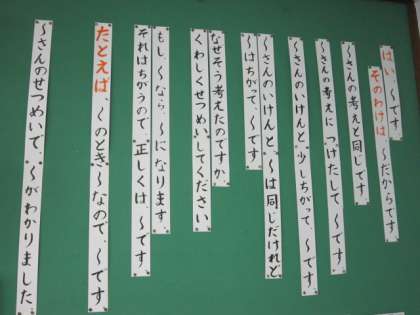 はい、〜です
そのわけは〜だからです
〜さんの考えと同じです
〜さんの考えに つけたして、〜です
〜さんのいけんと 少しちがって、〜です
〜さんのいけんと、〜は同じだけれど
〜はちがって 〜です
なぜそう考えたのですか
くわしくせつめいしてください
もし 〜なら、〜になります
それはちがうので 正しくは 〜です
たとえば、〜のとき〜なので、〜です
〜さんのせつめいで、〜がわかりました